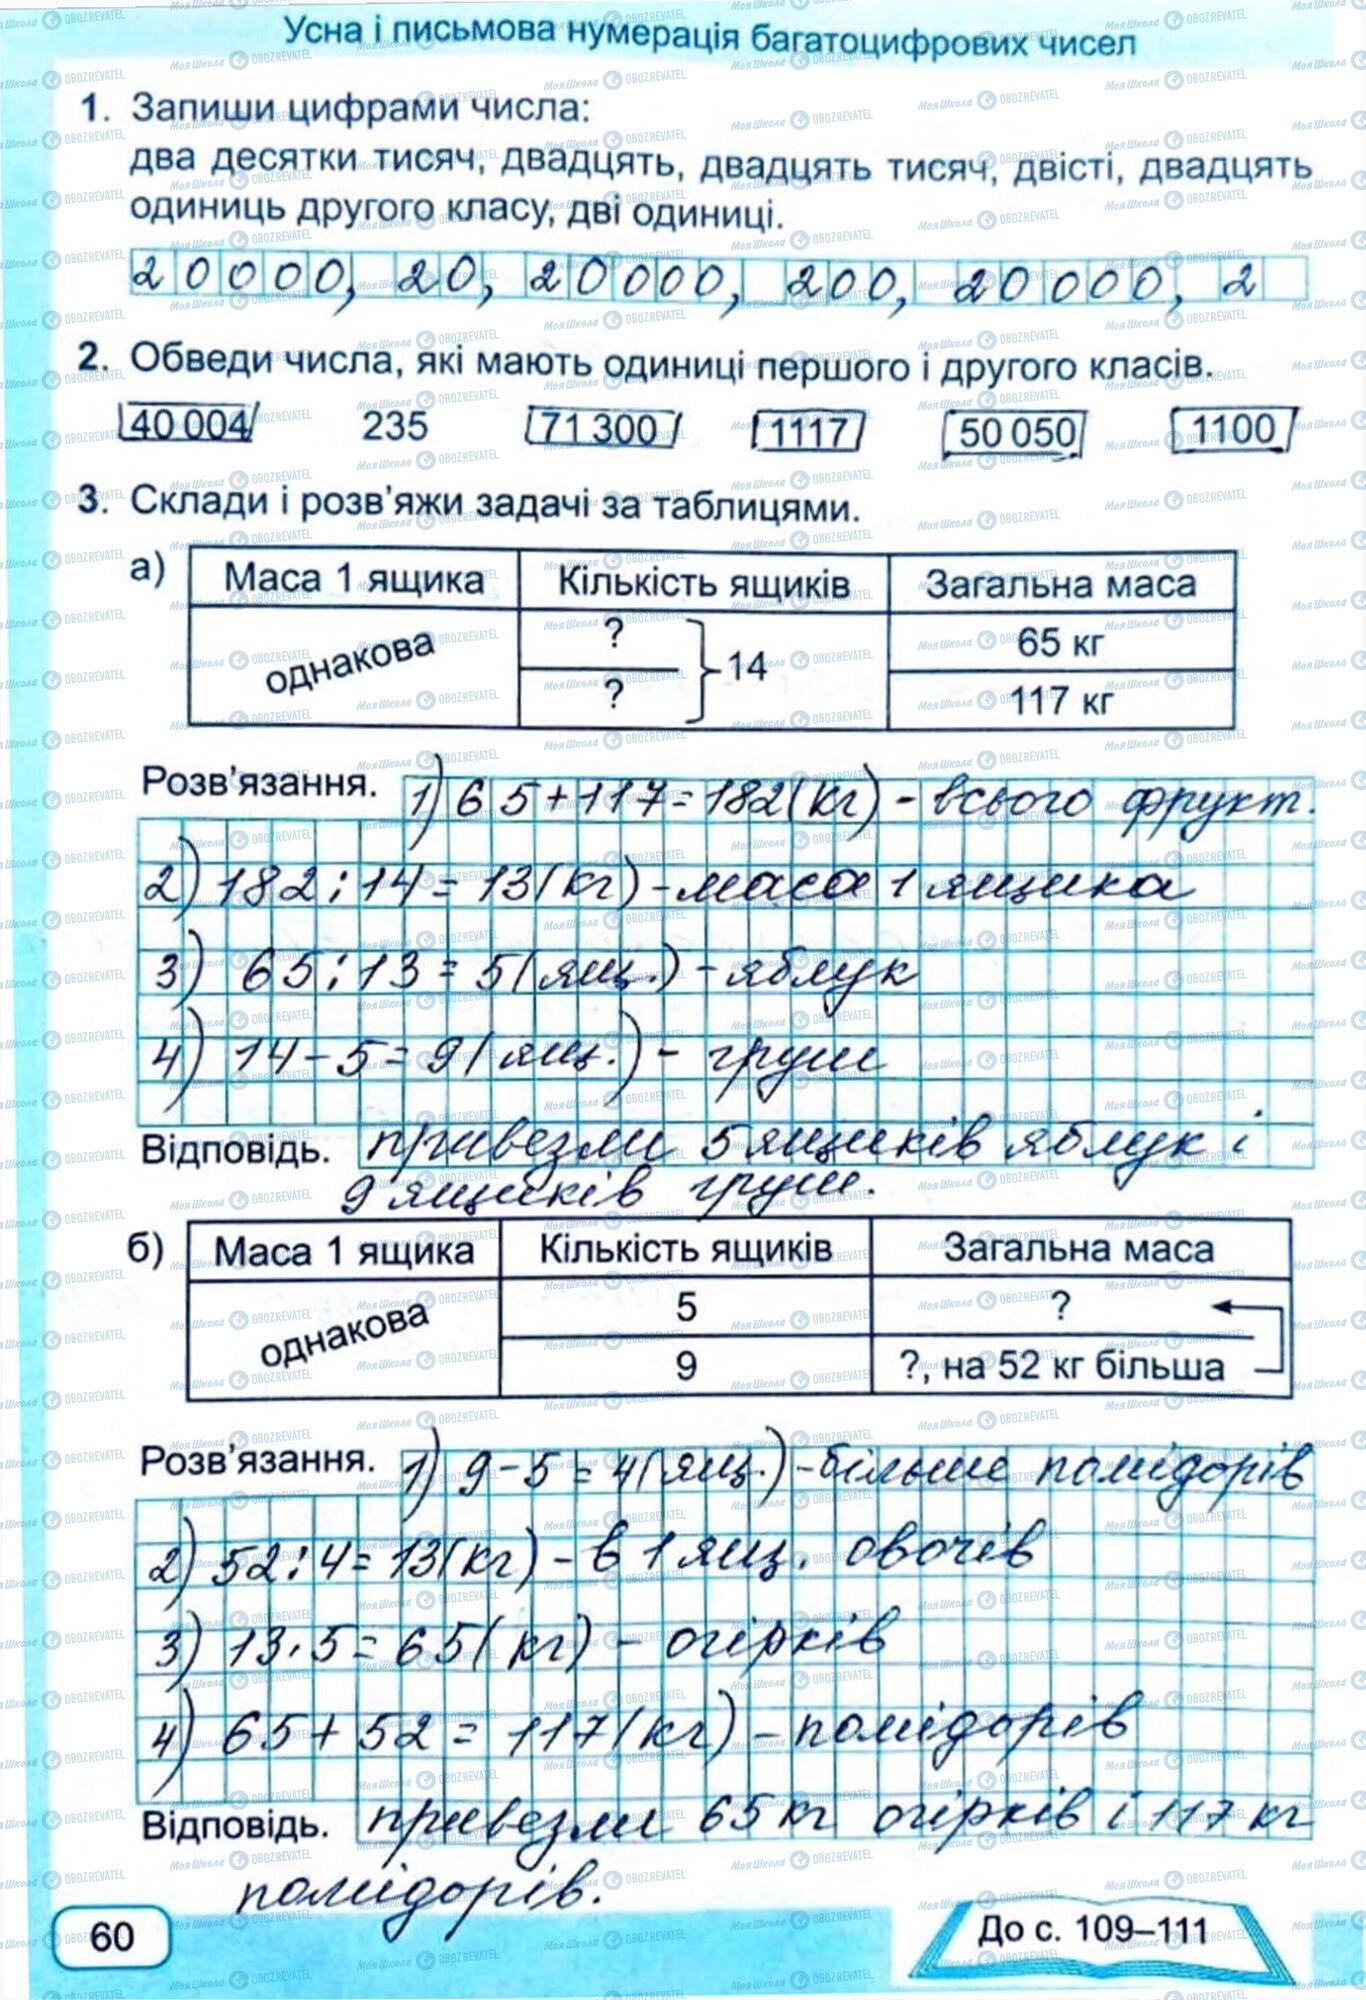 Усна і письмова нумерація багатоцифрових чисел
1. Запиши цифрами числа:
два десятки тисяч, двадцять, двадцять тисяч, двісті, двадцять
одиниць другого класу, дві одиниці.
20000, 20, 20000, 200, 20000, 2
2. Обведи числа, які мають одиниці першого і другого класів.
40 004 235 71 300 1117 50 050 1100
3. Склади і розв'яжи задачі за таблицями.
а) Маса 1 ящика Кількість ящиків Загальна маса
однакова ? } 14 65 кг
? 117 кг
Розв'язання. 1) 65+117=182(кг) - всього фрукт.
2) 182:14=13(кг) - маса 1 ящика
3) 65:13=5(ящ.) - яблук
4) 14-5=9(ящ.) - груш
Відповідь. привезли 5 ящиків яблук і
9 ящиків груш.
б) Маса 1 ящика Кількість ящиків Загальна маса
однакова 5 ?
9 ?, на 52 кг більша
Розв'язання. 1) 9-5=4(ящ.) - більше помідорів
2) 52:4=13(кг) - в 1 ящ. овочів
3) 13·5=65(кг) - огірків
4) 65+52=117(кг) - помідорів
Відповідь. привезли 65 кг огірків і 117 кг
помідорів.
60 До с. 109–111
МояШкола OBOZREVATEL